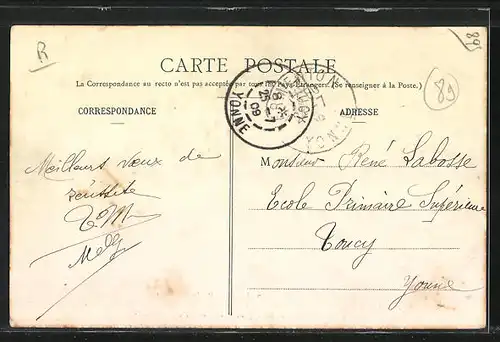 R
89
CARTE POSTALE
La Correspondance au recto n'est pas acceptée par tous les Pays Etrangers. (Se renseigner à la Poste.)
89
CORRESPONDANCE
ADRESSE
YONNE
09
Meilleurs vœux de
réussite
Monsieur René Labosse
Ecole Primaire Supérieure
Toucy
Yonne